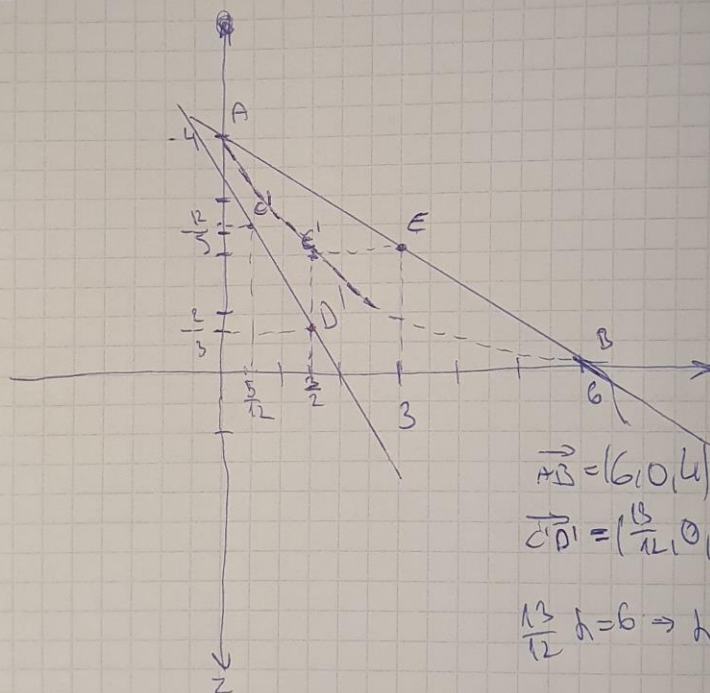 A
-4
C'
12/5
E'
E
D'
2/3
B
5/12
3/2
3
6
AB = (6,0,4)
C'D' = (13/12,0,
13/12 λ=6 ⇒ λ
Z